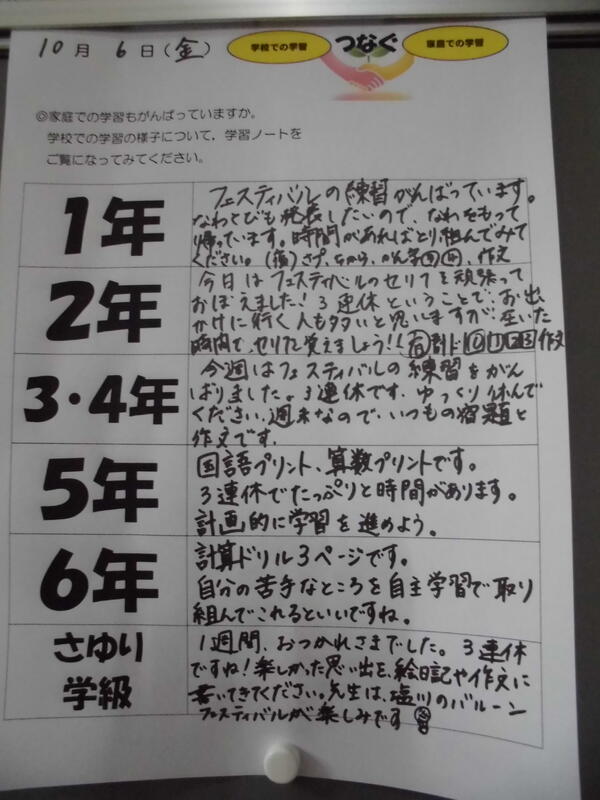 10月 6日(金)
学校での学習 つなぐ 家庭での学習
◎家庭での学習もがんばっていますか。
学校での学習の様子について,学習ノートを
ご覧になってみてください。
1年
フェスティバルの練習がんばっています。
なわとびも発表したいので、なわをもって
帰っています。時間があればとり組んでみて
ください。(宿)さプ、ちから、かん学 作文
2年
今日はフェスティバルのセリフを頑張って
おぼえました!3連休ということで、お出
かけに行く人も多いと思いますが、空いた
時間で、セリフを覚えましょう!! 作文
3・4年
今週はフェスティバルの練習をがん
ばりました。3連休です。ゆっくり休んで
ください。週末なので、いつもの宿題と
作文です。
5年
国語プリント、算数プリントです。
3連休でたっぷりと時間があります。
計画的に学習を進めよう。
6年
計算ドリル3ページです。
自分の苦手なところを自主学習で取り
組んでこれるといいですね。
さゆり
学級
1週間、おつかれさまでした。3連休
ですね!楽しかった思い出を、絵日記や作文に
書いてきてください。先生は、塩川のバルーン
フェスティバルが楽しみです